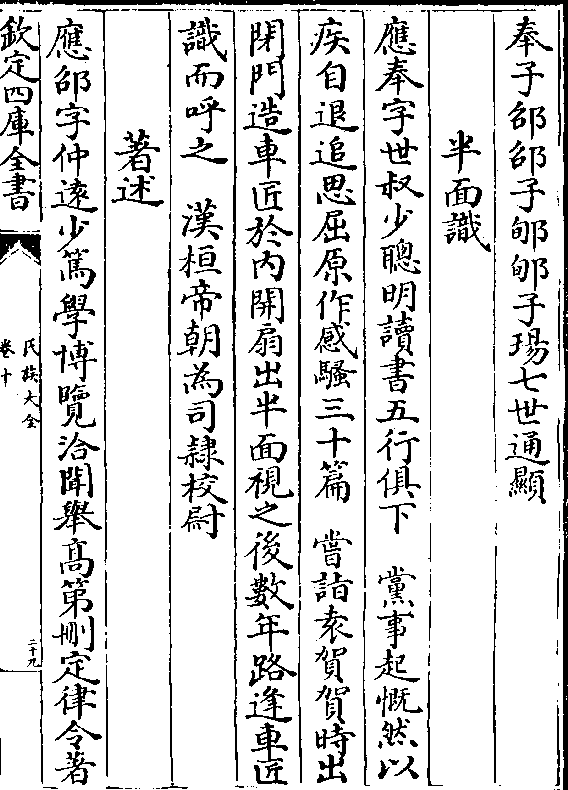 奉子邵邵子郇郇子瑒七世通顯
半面識
應奉字世叔少聰明讀書五行俱下　黨事起慨然以
疾自退追思屈原作感騷三十篇　嘗詣袁賀賀時出
閉門造車匠於內開扇出半面視之後數年路逢車匠
識而呼之　漢桓帝朝為司隸校尉
著述
應邵字仲遠少篤學博覽洽聞舉高第刪定律令著
欽定四庫全書
氏族大全
卷十
二十九